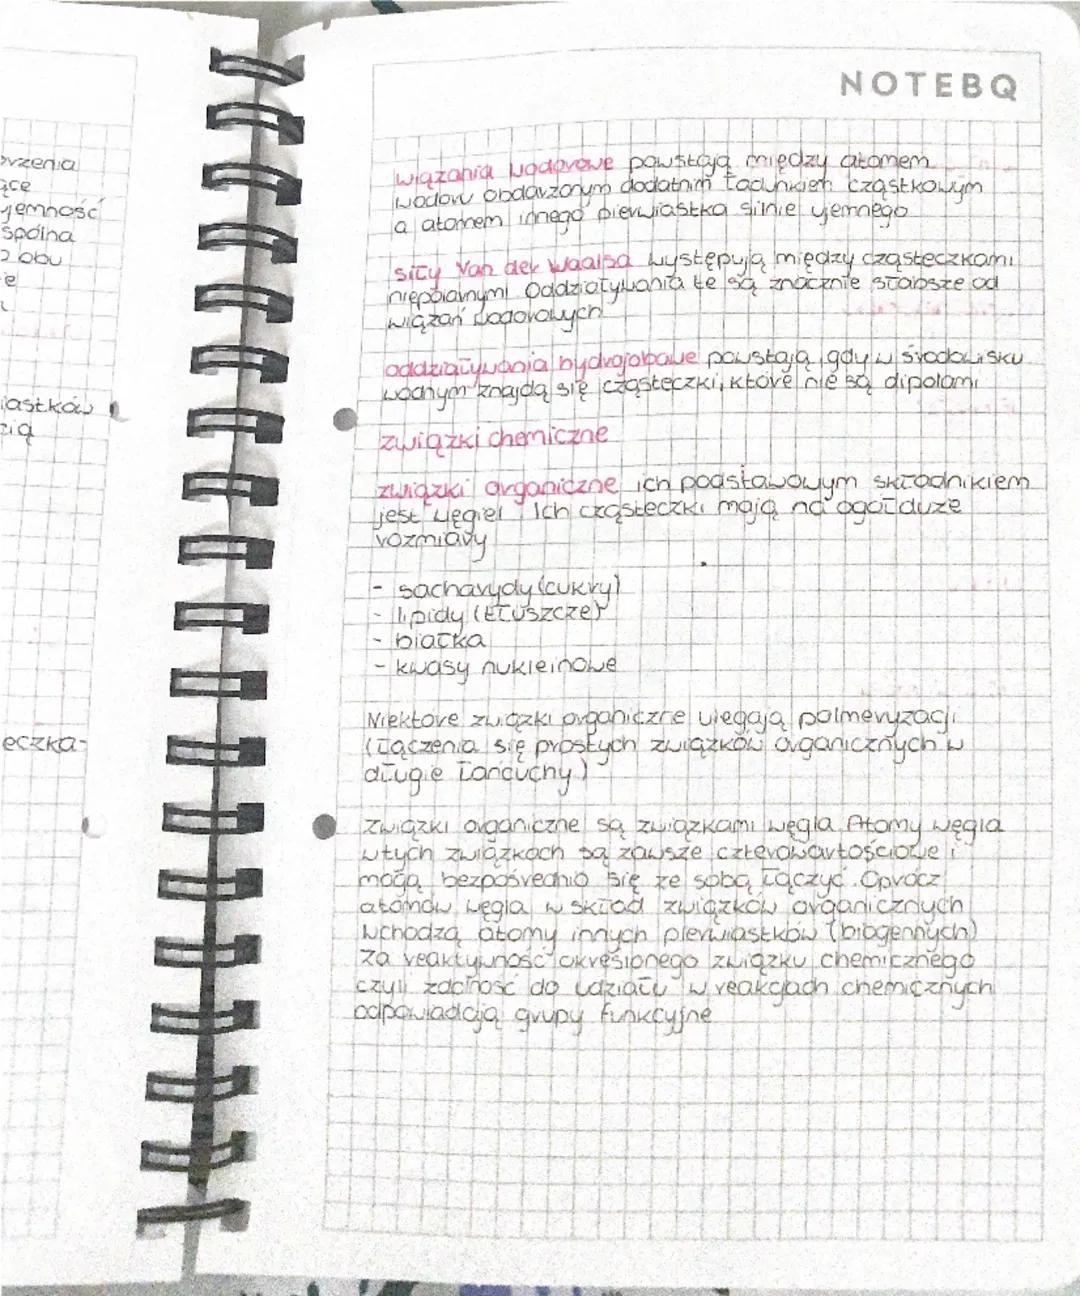 NOTEBQ
ącę
spólna
obu
iastków
eczka-
wiązania wodorowe powstają między atomem
wodoru obdarzonym dodatnim ładunkiem cząstkowym
a atomem innego pierwiastka silnie ujemnego
siły Van der Waalsa występują między cząsteczkami
niepolarnymi. Oddziaływania te są znacznie słabsze od
wiązań wodorowych
oddziaływania hydrofobowe powstają, gdy w środowisku
wodnym znajdą się cząsteczki, które nie są dipolami
związki chemiczne
związki organiczne ich podstawowym składnikiem
jest węgiel. Ich cząsteczki mają na ogół duże
rozmiary
- sacharydy (cukry)
- lipidy (tłuszcze)
- białka
- kwasy nukleinowe
Niektóre związki organiczne ulegają polmeryzacji
(łączenia się prostych związków organicznych w
długie łańcuchy)
Związki organiczne są związkami węgla. Atomy węgla
w tych związkach są zawsze czterowartościowe i
mogą bezpośrednio się ze sobą łączyć. Oprócz
atomów węgla w skład związków organicznych
wchodzą atomy innych pierwiastków (biogennych)
Za reaktywność określonego związku chemicznego
czyli zdolność do udziału w reakcjach chemicznych
odpowiadają grupy funkcyjne